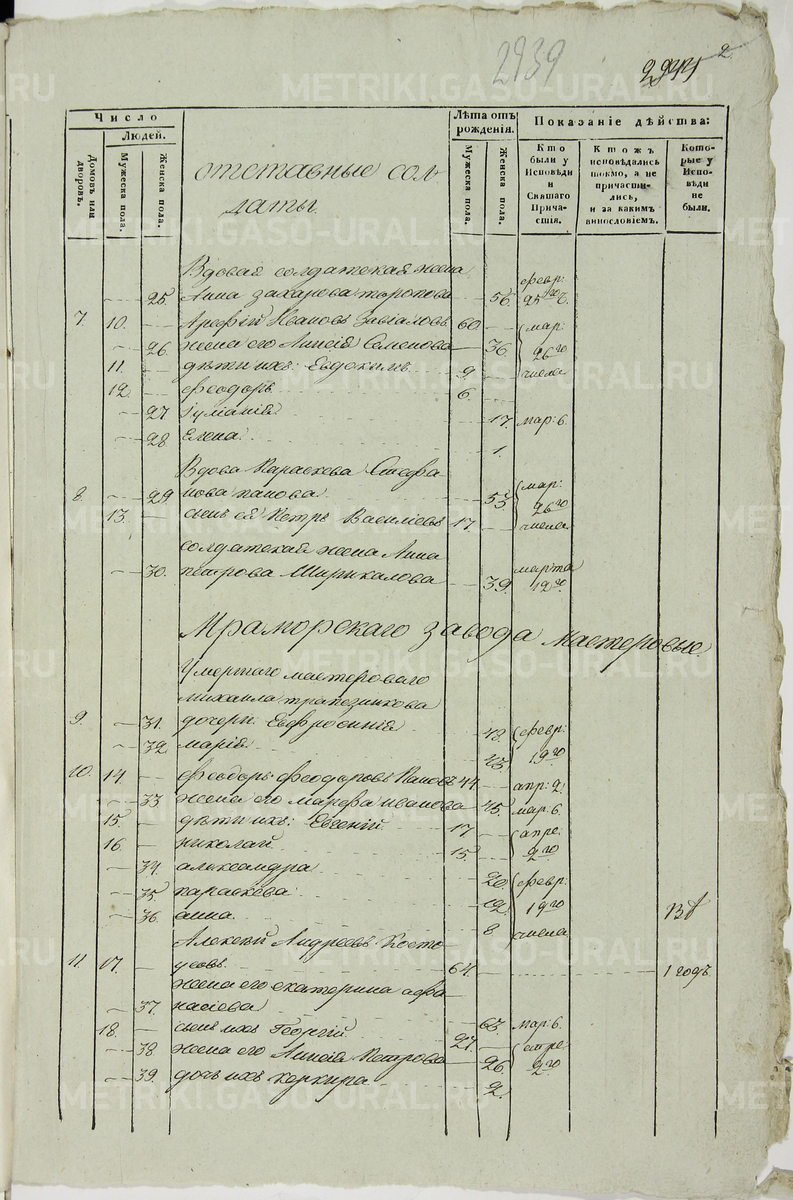 2939
2941 2
Число
Людей.
Домовъ или дворовъ.
Мужеска пола.
Женска пола.
отставные сол-
даты.
Лѣта отъ рожденія.
Мужеска пола.
Женска пола.
Показаніе дѣйства:
Кто были у Исповѣди и Святаго Причастія.
Ктожъ исповѣдались токмо, а не причастились, и за какимъ винословіемъ.
Которые у Исповѣди не были.
Вдовая солдатская жена
25. Анна Захарова Торопова 56. февр: 25го ч.
7. 10. Арефій Ивановъ Завіаловъ 60. мар:
26. жена его Анисія Семенова 36. 26го
11. дѣти ихъ: Евдокимъ 9. числа
12. Феодоръ 6.
27 Іуліанія 17. мар: 6.
28 Елена. 1.
Вдова Параскева Стефа
8. 29. нова Панова 53 мар: 26го
13. сынъ ея Петръ Василіевъ 17. числа
солдатская жена Анна
30. Петрова Ширикалова 39. марта 12го
Мраморскаго завода мастеровые.
Умершаго мастероваго
Михаила Трапезникова
9. 31. дочери: Евфросинія 48. февр:
32. Марія 43. 19го
10. 14. Феодоръ Феодоровъ Пановъ 44. апр: 2.
33 жена его Марфа Иванова 45. мар: 6.
15. дѣти ихъ: Евгеній 17 апре.
16 Николай 15. 2го
34. Александра 20. февр:
35 Параскева 12. 19го
36. Анна 8 числа
Алексѣй Андреевъ Косто-
11. 17. усовъ 64. 1 годъ
жена его Екатерина Афа
37. насіева 63. мар: 6.
18. сынъ ихъ Георгій 27.
38. жена его Анисія Петрова 26. 2го
39. дочь ихъ Керкира 2.
METRIKI.GASO-URAL.RU